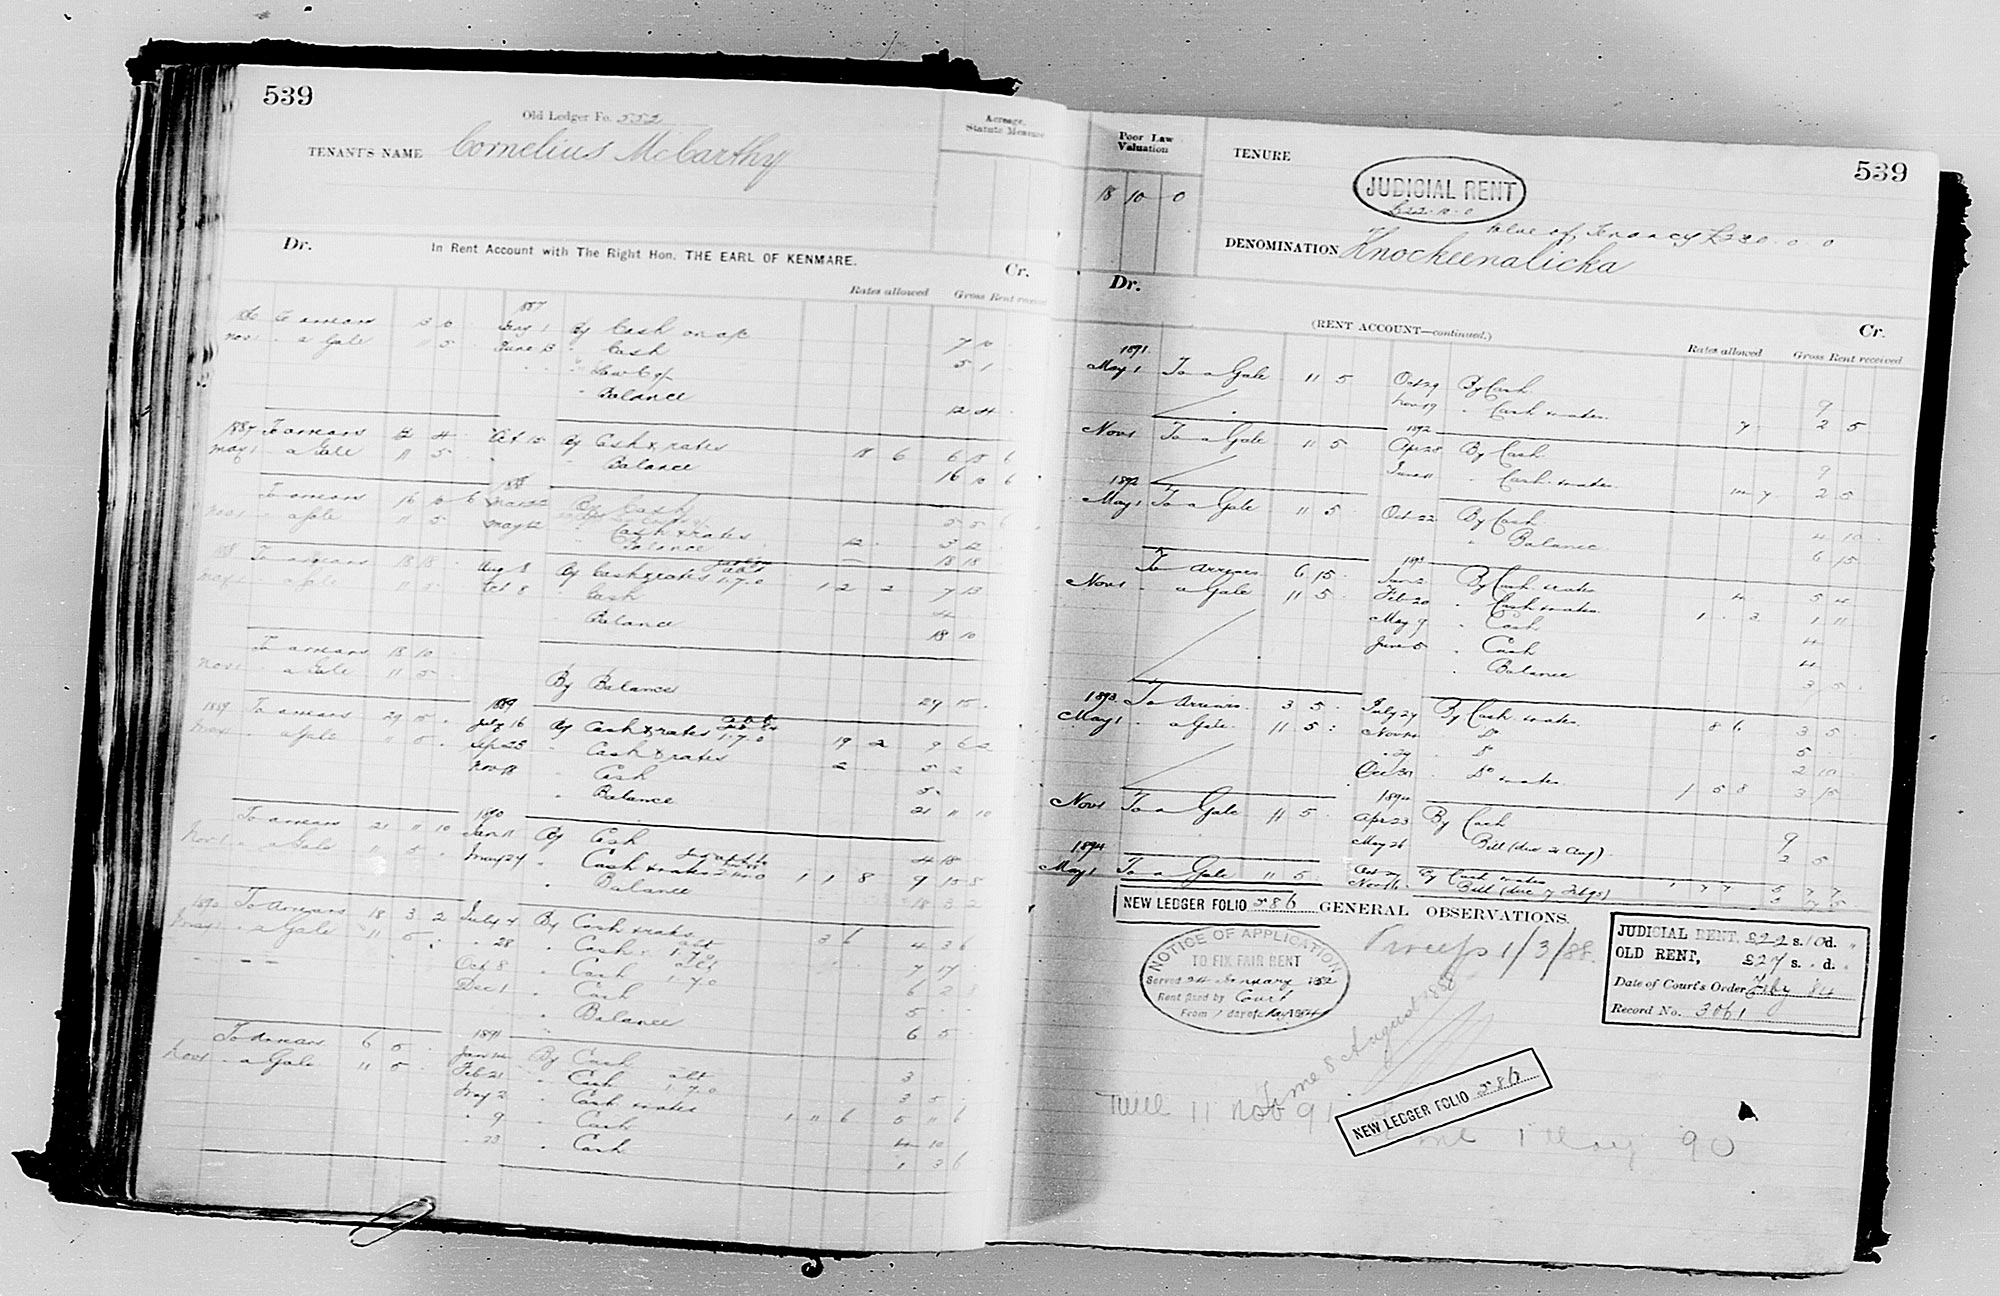 539
Old Ledger Fo. 552
TENANT'S NAME Cornelius McCarthy
Acreage, Statute Measure
Dr. In Rent Account with The Right Hon. THE EARL OF KENMARE. Cr.
Rates allowed Gross Rent received
1887
To arrears 13 0 By Cash on a/c 7 10
Nov 1 a Gale 11 5 June 13 " Cash 5 1
Balance 12 4
1887 To arrears 12 4 Oct 15 By Cash & rates 18 6 6 18 6
May 1 a Gale 11 5 Balance 16 10 6
1888
To arrears 16 10 6 By Cash 5 5 6
Nov 1 a Gale 11 5 May 12 Cash & rates 12 3 12
Balance 18 18
1888 To arrears 18 18 Aug 8 By Cash & rates 1.7.0 1 2 2 7 13
May 1 a Gale 11 5 Oct 8 " Cash 4
Balance 18 10
To arrears 18 10
Nov 1 a Gale 11 5 By Balance 29 15
1889
1889 To arrears 29 15 July 16 By Cash & rates 1.7.0 19 2 9 6 2
May 1 a Gale 11 5 Sep 25 " Cash & rates 2 5 2
Nov 18 " Cash 5
" Balance 21 11 10
1890
To arrears 21 11 10 Jan 11 By Cash 4 18
Nov 1 a Gale 11 5 May 24 " Cash & rates 1 1 8 9 15 8
" Balance 18 3 2
1890 To Arrears 18 3 2 July 4 By Cash & rates 3 6 4 3 6
May 1 a Gale 11 5 " 28 " Cash 1.7.0 7 17
Oct 8 " Cash 1.7.0 6 2 8
Dec 1 " Cash 5
" Balance 6 5
1891
To Arrears 6 5 Jan 14 By Cash 3
Nov 1 a Gale 11 5 Feb 21 " Cash 1.7.0 3 5
May 2 " Cash & rates 1 11 6 5 11 6
" 9 " Cash 4 10
" 23 " Cash 1 3 6
Poor Law Valuation
18 10 0
TENURE
539
JUDICIAL RENT
£22.10.0
Value of Tenancy £230.0.0
DENOMINATION Knockeenalicka
Dr. (RENT ACCOUNT—continued.) Cr.
Rates allowed Gross Rent received
1891
May 1 To a Gale 11 5 Oct 29 By Cash 9
Nov 19 " Cash & rates 7 2 5
1892
Nov 1 To a Gale 11 5 Apr 25 By Cash 9
June 11 " Cash & rates 7 2 5
1892
May 1 To a Gale 11 5 Oct 22 By Cash 4 10
" Balance 6 15
1893
To Arrears 6 15 Jan 2 By Cash & rates 4 5 4
Nov 1 a Gale 11 5 Feb 20 " Cash & rates 1 . 3 1 11
May 9 " Cash 4
June 5 " Cash 4
" Balance 3 5
1893 To Arrears 3 5 July 27 By Cash & rates 8 6 3 5
May 1 a Gale 11 5 Nov 14 " Do 5
" 29 " Do 2 10
Dec 30 " Do & rates 1 5 8 3 15
1894
Nov 1 To a Gale 11 5 Apr 23 By Cash 9
May 26 Bill (due 21 Aug) 2 5
1894
May 1 To a Gale 11 5 Oct 27 By Cash & rates 1 7 7 5 7 7
Nov 16 Bill (due 7 Feb 95)
NEW LEDGER FOLIO 586 GENERAL OBSERVATIONS.
NOTICE OF APPLICATION
TO FIX FAIR RENT
Served 24 January 1882
Rent fixed by Court
From 1 day of May 1884
1/3/88
JUDICIAL RENT, £22 s. 10 d. "
OLD RENT, £27 s. . d. .
Date of Court's Order Feby 84
Record No. 3061
Time 8 August 1888
Time 11 Nov 91
NEW LEDGER FOLIO 586
1 May 90